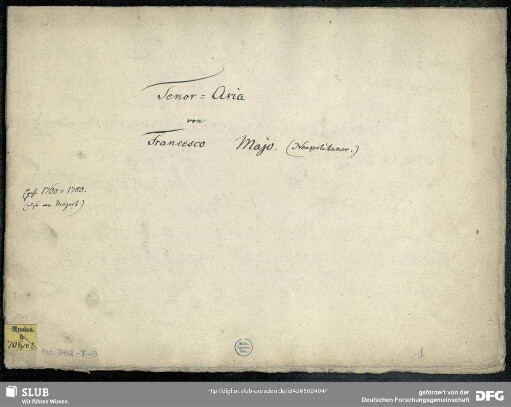 Tenor = Aria
von
Francesco Majo. (Neapolitaner.)
1760 = 1780.
Musica.
Mus. 3448-F-3
1
SLUB
Wir führen Wissen.
http://digital.slub-dresden.de/id426502404/1
gefördert von der
Deutschen Forschungsgemeinschaft
DFG